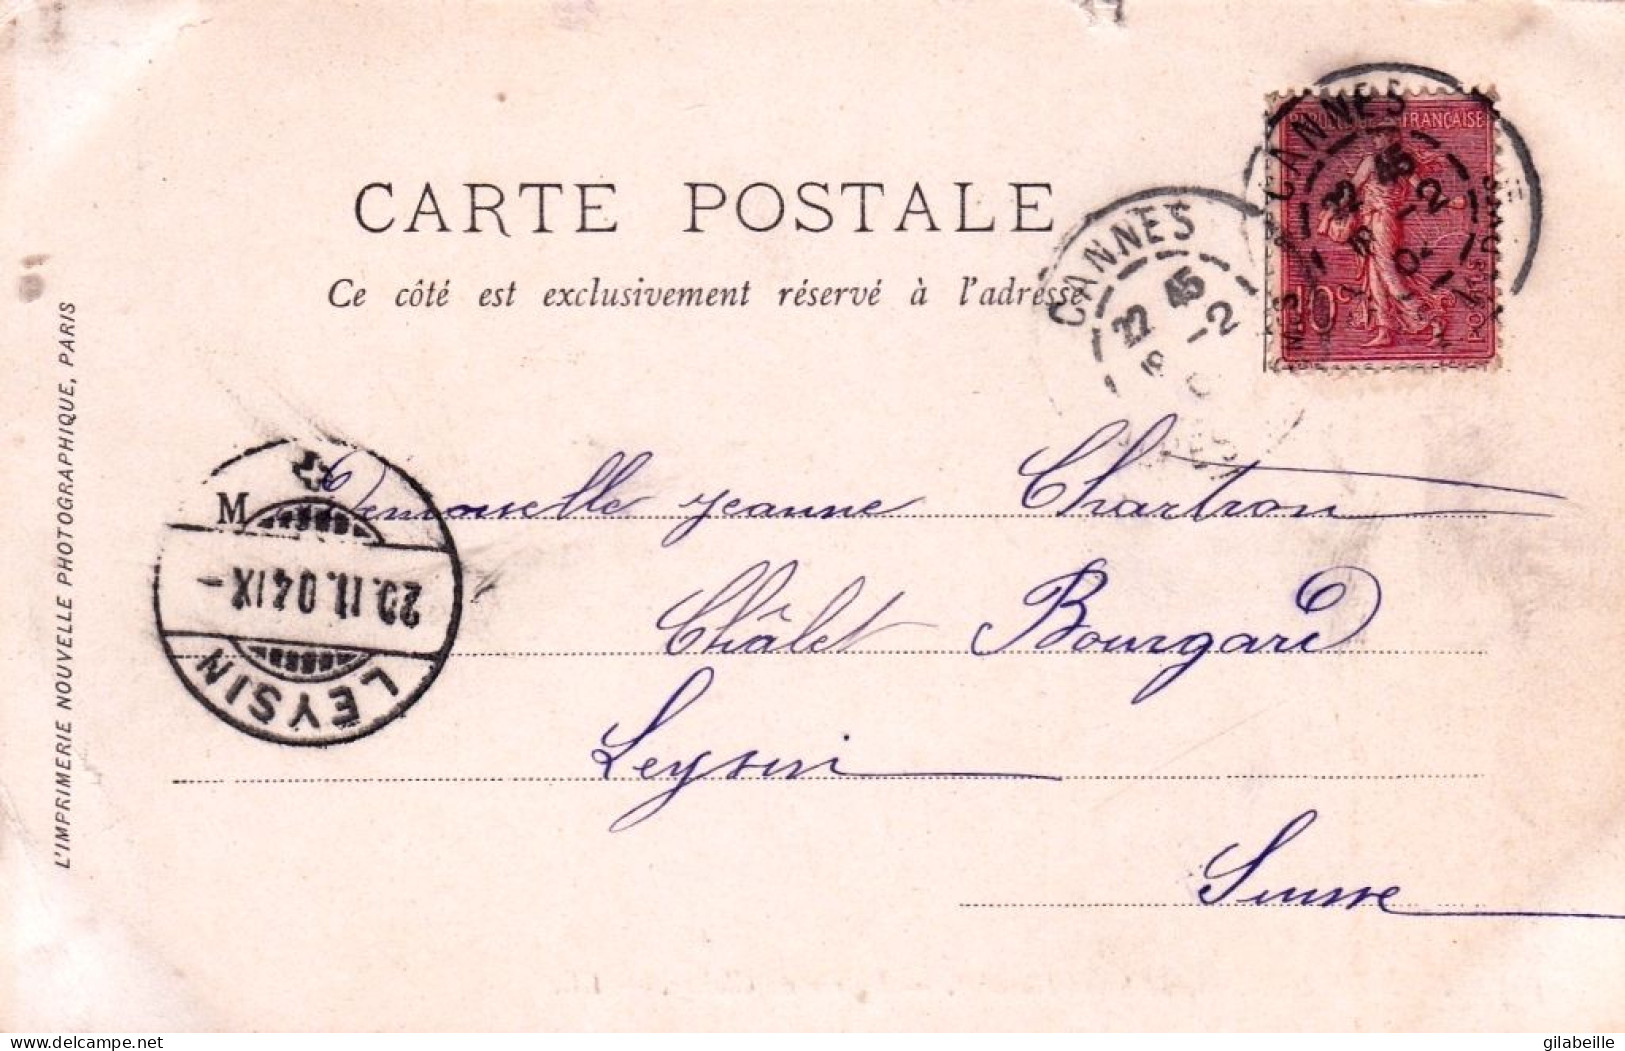 CARTE POSTALE
Ce côté est exclusivement réservé à l'adresse
RÉPUBLIQUE FRANÇAISE
10 c
POSTES
CANNES
22 45
18 -2
CANNES
22 45
18 -2
Demoiselle Jeanne Chartron
M
Châlet Bourgard
Leysin
Suisse
20.II.04.IX-
LEYSIN
L'IMPRIMERIE NOUVELLE PHOTOGRAPHIQUE, PARIS
www.delcampe.net
gilabeille